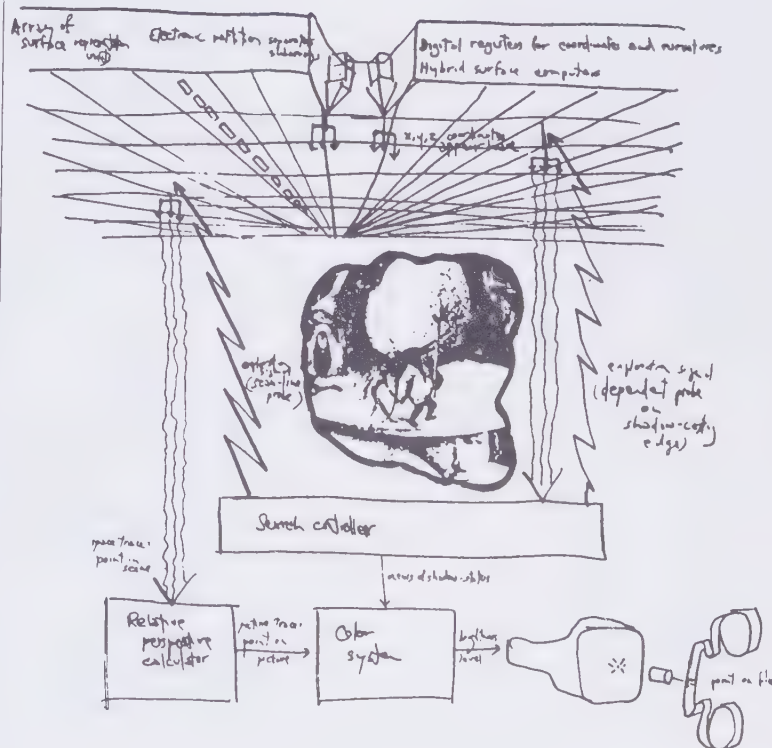 Array of
surface
units
Electronic partition separates
subarrays
Digital registers for coordinates and curvatures
Hybrid surface computers
x, y, z coordinates
(scan-line
probe)
exploration signal
(dependent probe
on
shadow-casting
edge)
Search controller
space trace-
point in
scene
news of shadow-status
Relative
perspective
calculator
picture trace-
point on
picture
Color
system
brightness
level
point on film